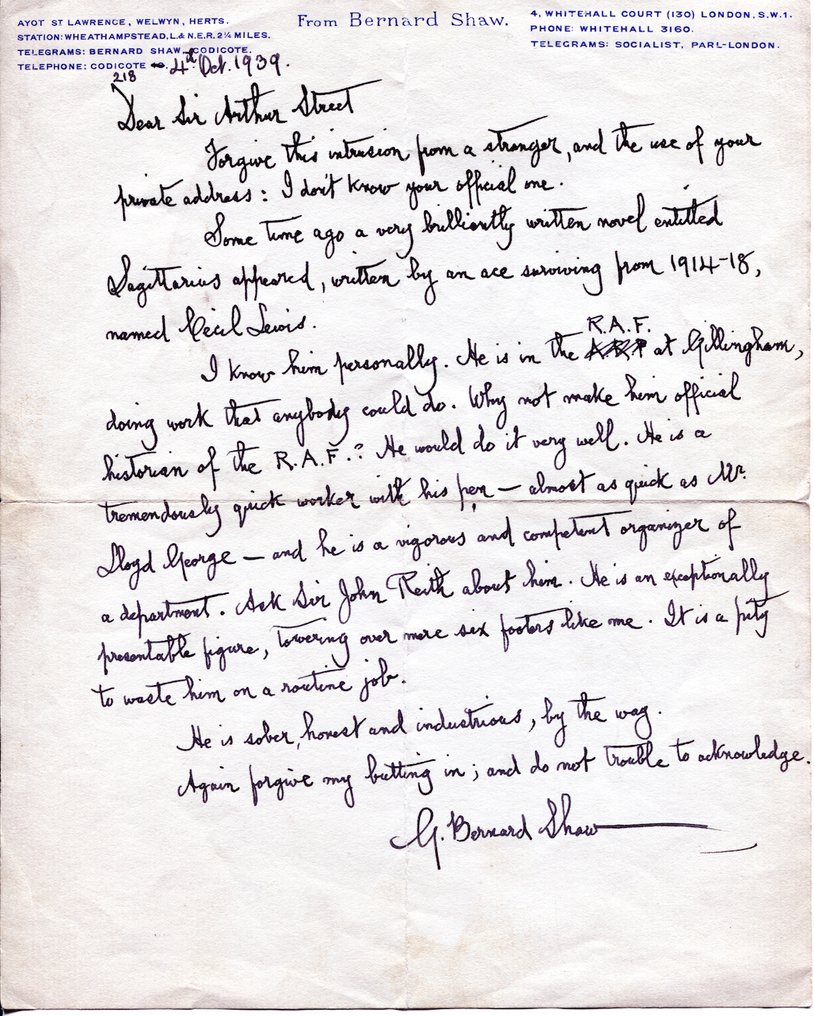 AYOT ST LAWRENCE, WELWYN, HERTS.
STATION: WHEATHAMPSTEAD, L.& N.E.R. 2¼ MILES.
TELEGRAMS: BERNARD SHAW, CODICOTE.
TELEPHONE: CODICOTE
218
From Bernard Shaw.
4, WHITEHALL COURT (130) LONDON, S.W.1.
PHONE: WHITEHALL 3160.
TELEGRAMS: SOCIALIST, PARL-LONDON.
4th Oct. 1939.
Dear Sir Arthur Street
Forgive this intrusion from a stranger, and the use of your
private address: I don't know your official one.
Some time ago a very brilliantly written novel entitled
Sagittarius appeared, written by an ace surviving from 1914-18,
named Cecil Lewis.
I know him personally. He is in the R.A.F. at Gillingham,
doing work that anybody could do. Why not make him official
historian of the R.A.F.? He would do it very well. He is a
tremendously quick worker with his pen — almost as quick as Mr.
Lloyd George — and he is a vigorous and competent organizer of
a department. Ask Sir John Reith about him. He is an exceptionally
presentable figure, towering over mere six footers like me. It is a pity
to waste him on a routine job.
He is sober, honest and industrious, by the way.
Again forgive my butting in; and do not trouble to acknowledge.
G. Bernard Shaw